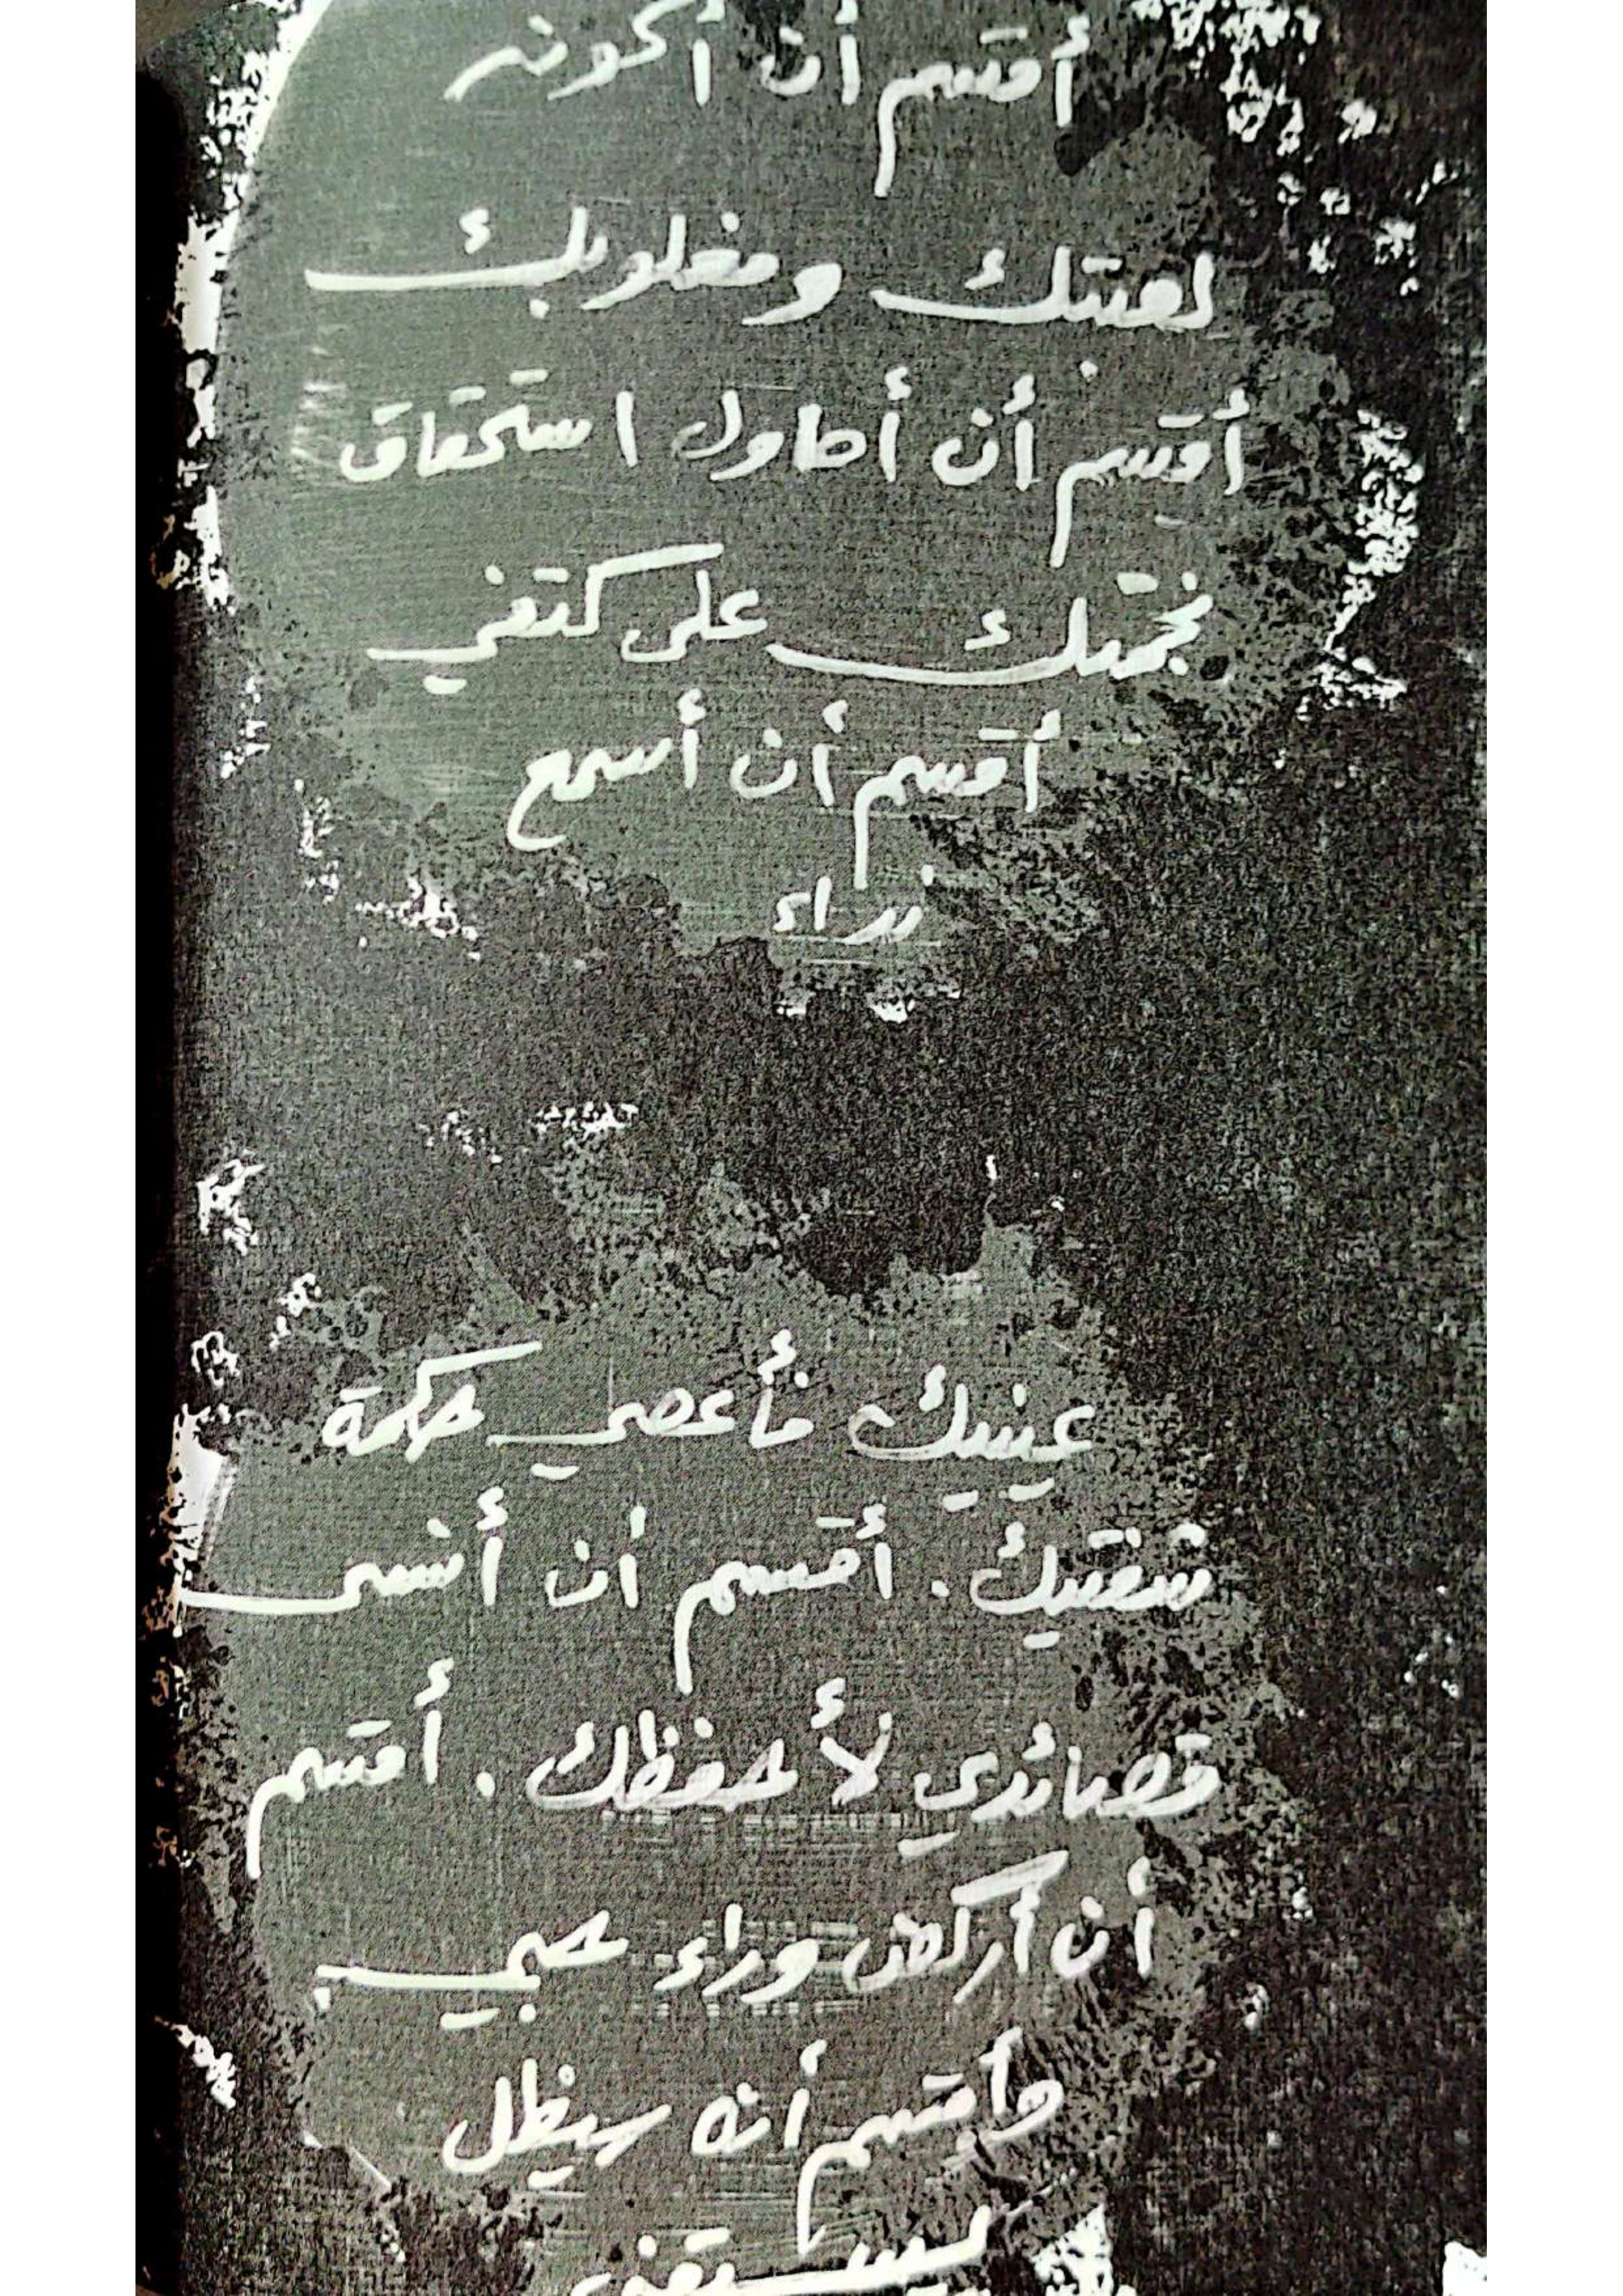 أقسم أن أكون
لعبتك ومغلوبك
أقسم أن أحاول استحقاق
نجمتك على كتفي
أقسم أن أسمع
نداء
عينيك فأعصي حكمة
شفتيك. أقسم أن أنسى
قصائدي لأحفظك. أقسم
أن أركض وراء حبي
وأقسم أنه سيظل